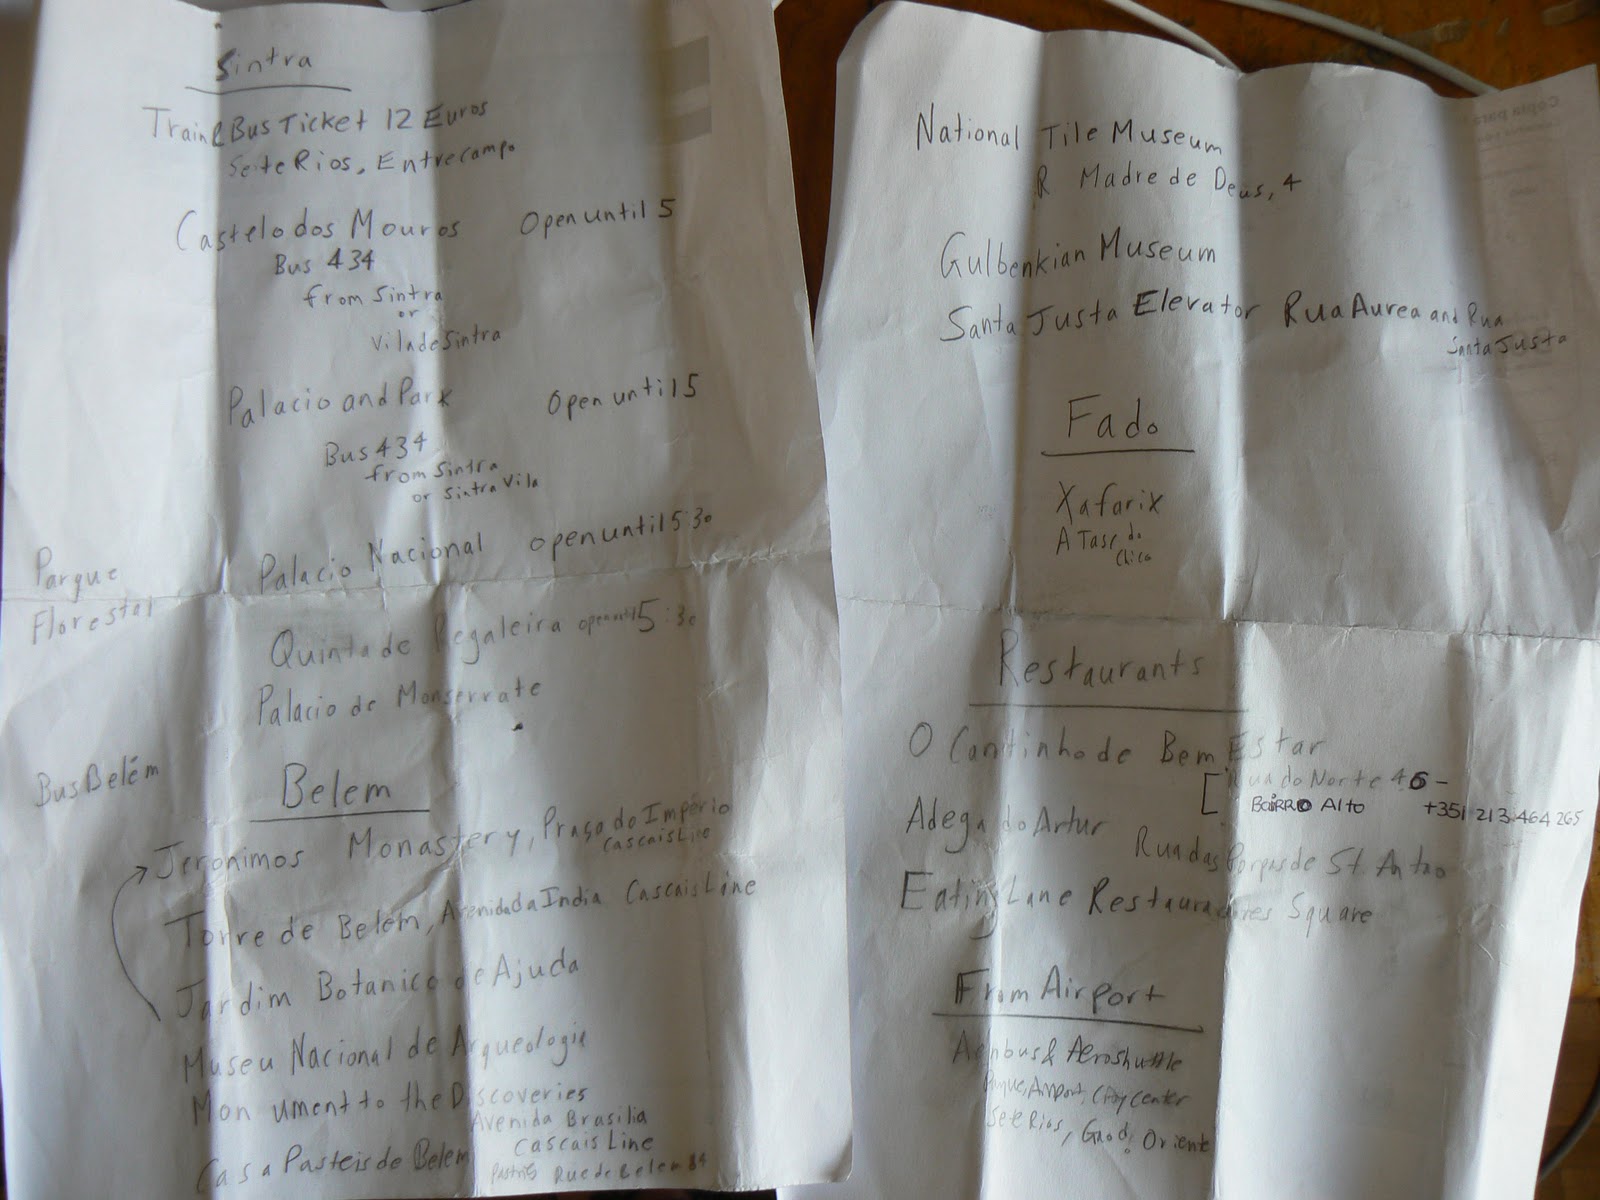 Sintra
Train & Bus Ticket 12 Euros
Seite Rios, Entrecampo
Castelo dos Mouros open until 5
Bus 434
from Sintra
or
Vila de Sintra
Palacio and Park open until 5
Bus 434
from Sintra
or Sintra Vila
Palacio Nacional open until 5 30
Parque
Florestal
Quinta de Regaleira open until 5:30
Palacio de Monserrate
Bus Belém
Belem
Jeronimos Monastery, Praça do Império
Cascais Line
Torre de Belem, Avenida da India Cascais Line
Jardim Botanico de Ajuda
Museu Nacional de Arqueologie
Monument to the Discoveries
Avenida Brasilia
Cascais Line
Casa Pasteis de Belem Rue de Belem 84
National Tile Museum
R Madre de Deus, 4
Gulbenkian Museum
Santa Justa Elevator Rua Aurea and Rua
Santa Justa
Fado
Xafarix
A Tasc do
Chico
Restaurants
O Cantinho de Bem Estar
[ Rua do Norte 46 -
BAIRRO Alto +351 213 464 265
Adega do Artur
Rua das Portas de St. Antao
Eating Lane Restauradores Square
From Airport
Aerobus & Aeroshuttle
Airport, City Center
Sete Rios, Oriente
Copia para